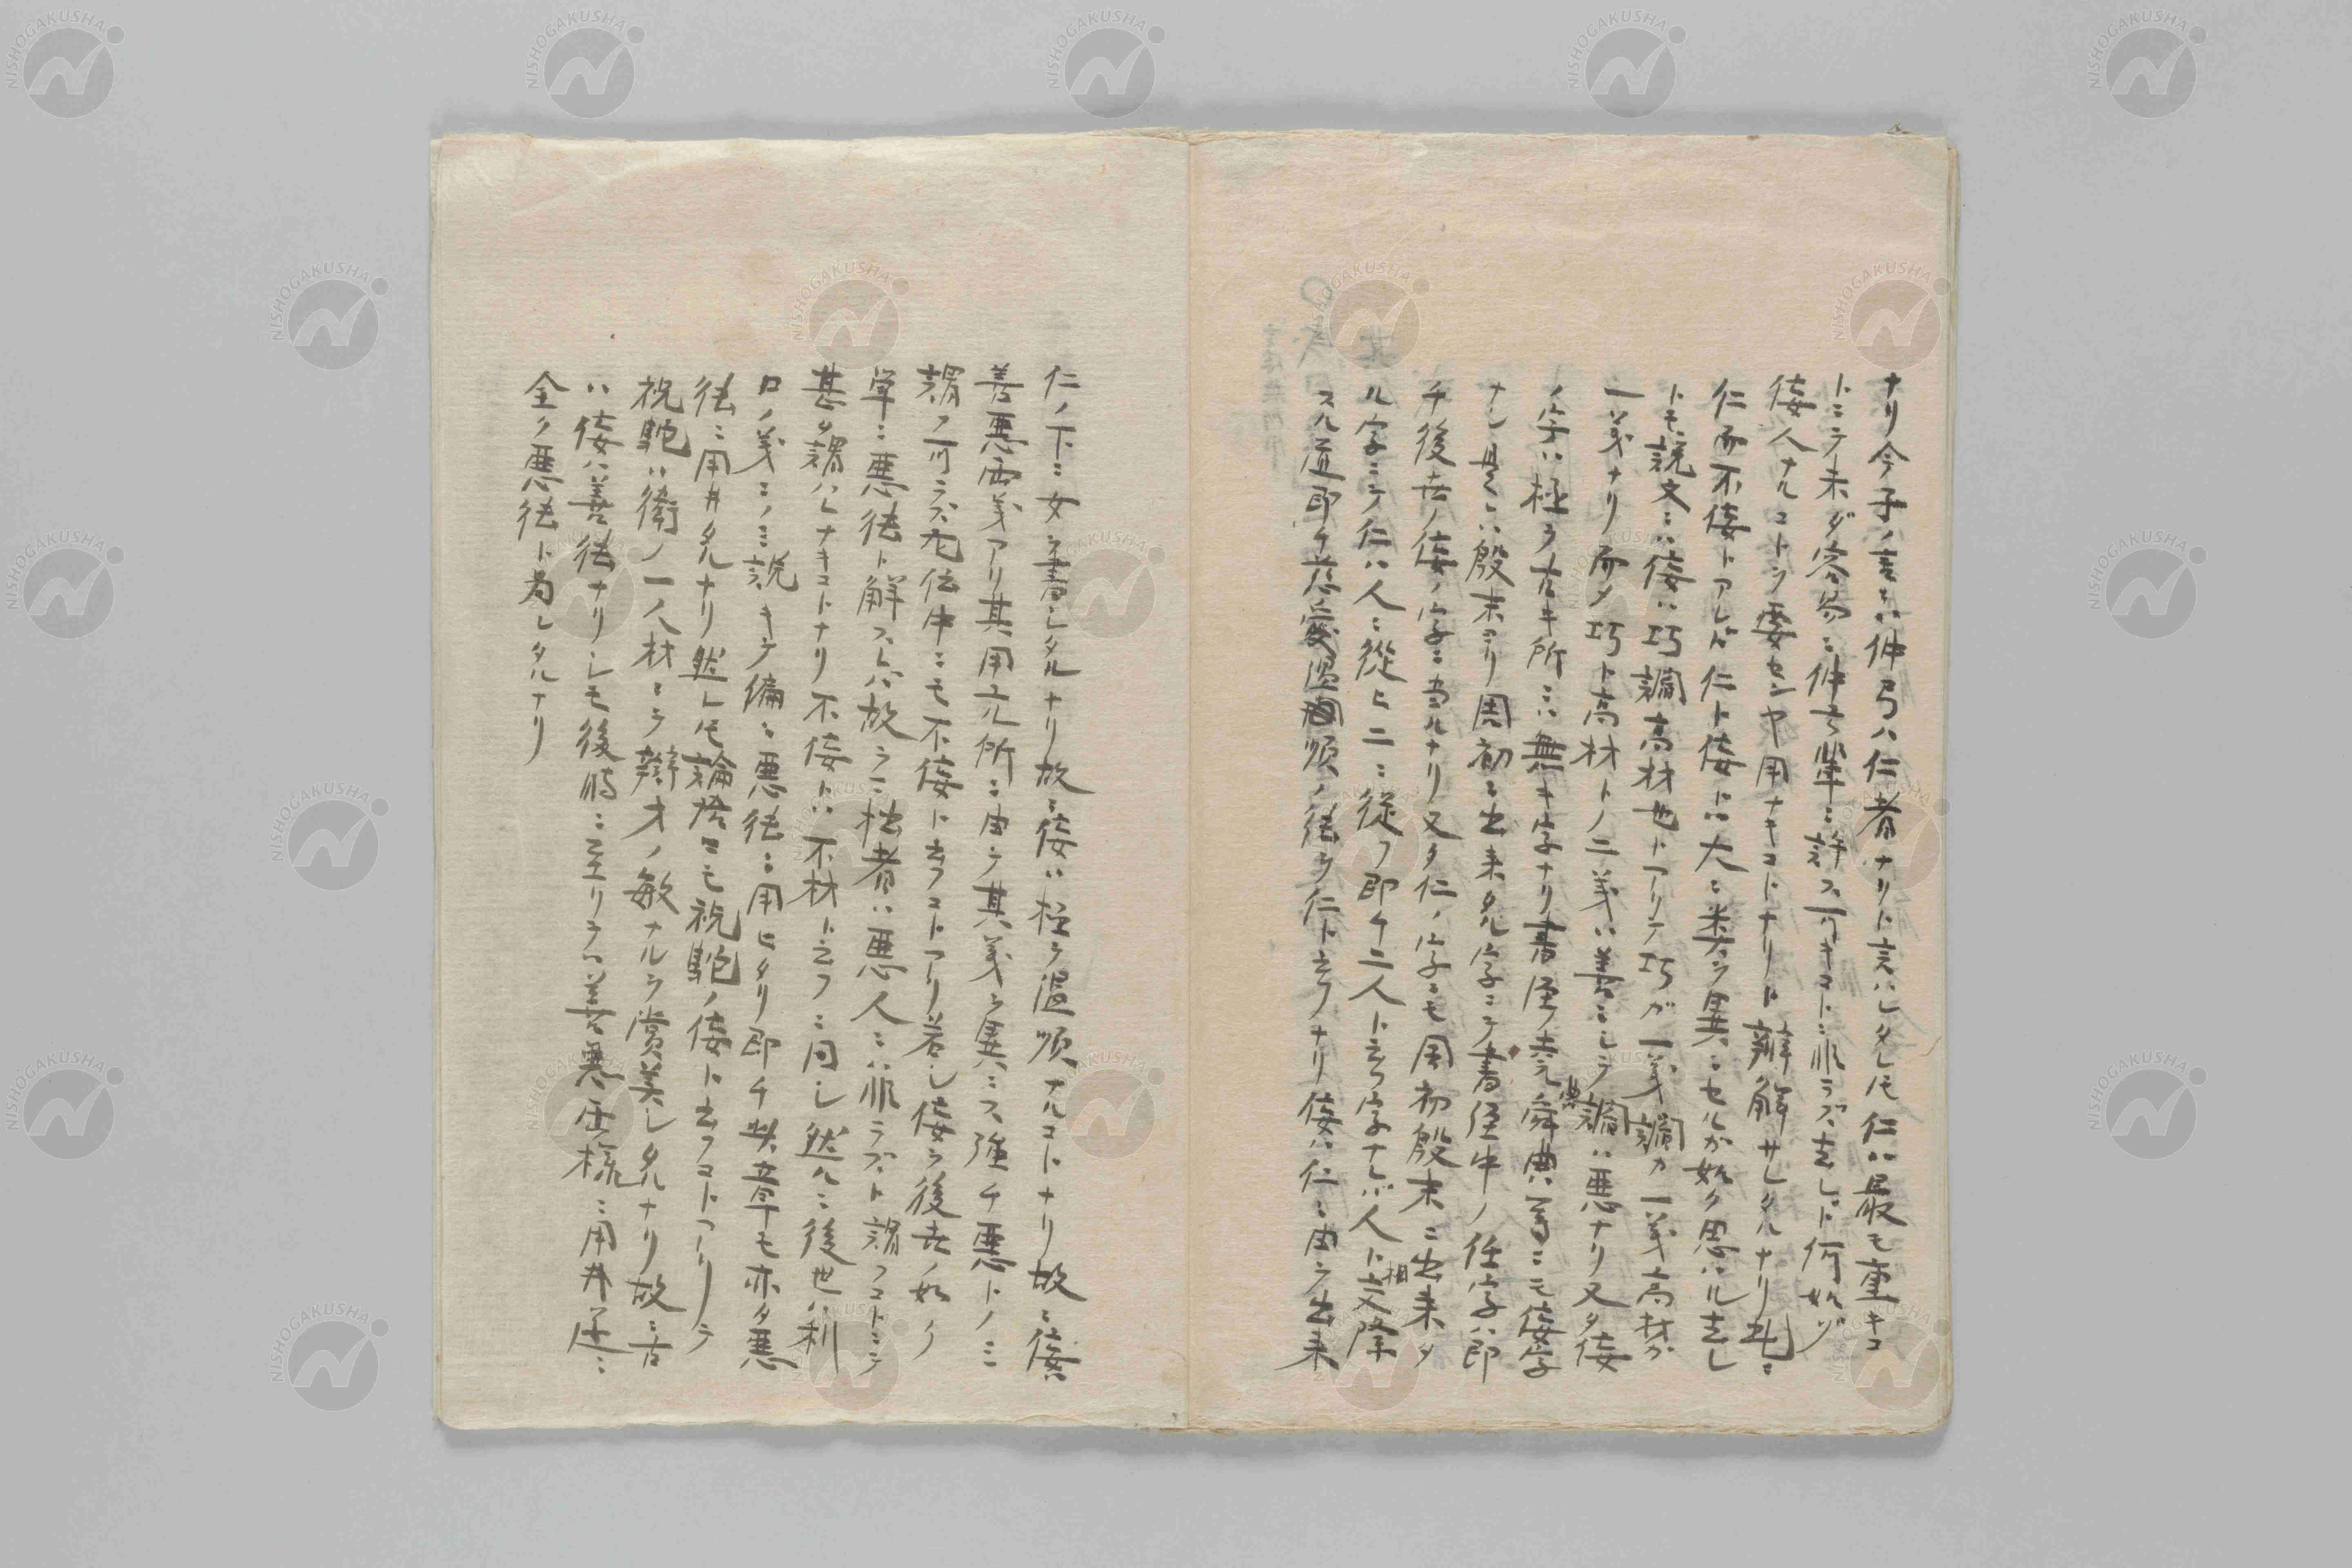 ナリ今子ノ言ハ仲弓ハ仁者ナリト言ハレタレ𪜈仁ハ最モ重キコ
トニテ未ダ容易ニ仲弓輩ニ許ス可キコトニ非ラズ去レド何如ゾ
佞人ナルコトヲ要センヤ用ナキコトナリト辯解サレタルナリ扨
仁而不佞トアレバ仁ト佞トハ大ニ類ヲ異ニセルガ如ク思ハル去レ
𪜈説文ニハ佞ハ巧讇高材也トアリテ巧ガ一義讇ガ一義高材ガ
一義ナリ而メ巧ト高材トノ二義ハ善ニシテ讇ハ悪ナリ又タ佞
ノ字ハ極ク古キ所ニハ無キ字ナリ書経ノ堯典舜典ハ等ニモ佞字
ナシ是レハ殷末ヨリ周初ニ出来タル字ニテ書経中ノ任字ハ即
チ後世ノ佞ノ字ニ当ルナリ又タ仁ノ字モ周初殷末ニ出来タ
ル字ニテ仁ハ人ニ從ヒ二ニ從フ即チ二人ト云フ字ナレバ人ト相交際
スル道即チ慈愛温順ノ徳ヲ仁ト云フナリ佞ハ仁ニ由テ出来
仁ノ下ニ女ヲ書レタルナリ故ニ佞ハ極ク温順ナルコトナリ故ニ佞ハ
善悪両義アリ其用ユル所ニ由テ其義ヲ異ニス強チ悪トノミ
謂フ可ラズ左伝中ニモ不佞ト云フコトアリ若シ佞ヲ後世ノ如ク
単ニ悪徳ト解スレバ故ラニ拙者ハ悪人ニハ非ラズト謂フコトニテ
甚タ謂ハレナキコトナリ不佞トハ不材ト云フニ同シ然ルニ後世ハ利
口ノ義ニノミ説キテ偏ニ悪徳ニ用ヒタリ即チ此章モ亦タ悪
徳ニ用井タルナリ然レ𪜈論語ニモ祝鮀ノ佞ト云フコトアリテ
祝鮀ハ衛ノ一人材ニテ辯才ノ敏ナルヲ賞美シタルナリ故ニ古
ハ佞ハ善徳ナリシモ後時ニ至リテハ善悪両様ニ用井遂ニ
全ク悪徳ト為レタルナリ